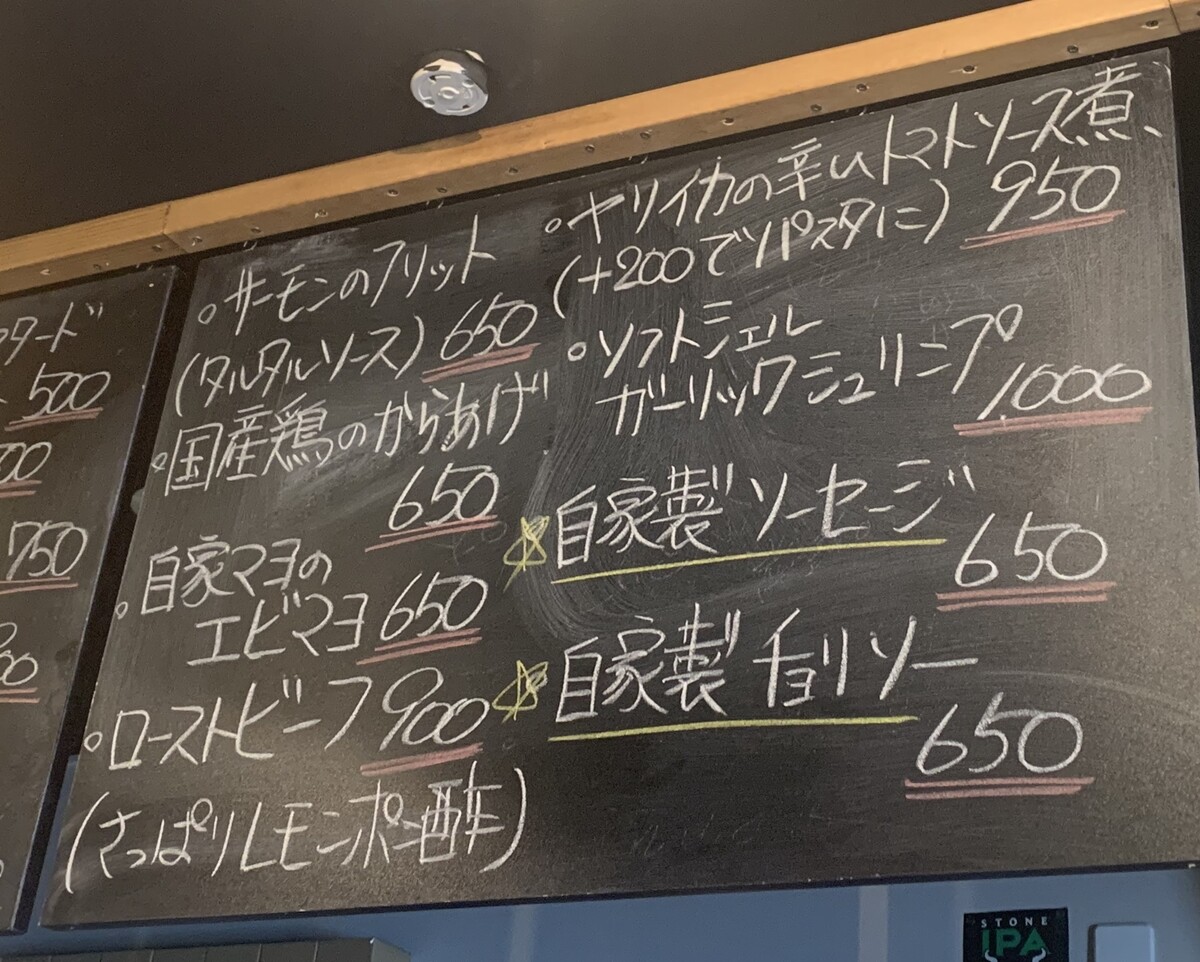 タード
500
00
750
・サーモンのフリット
(タルタルソース) 650
・国産鶏のからあげ
650
・自家マヨの
エビマヨ 650
・ローストビーフ 900
(さっぱりレモンポン酢)
・ヤリイカの辛いトマトソース煮
(+200でパスタに) 950
・ソフトシェル
ガーリックシュリンプ
1,000
☆自家製ソーセージ
650
☆自家製チョリソー
650
STONE
IPA